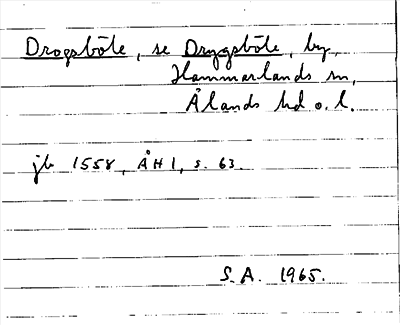 Drogsböte, se Dryggsböte, by,
Hammarlands sn,
Ålands hd o. l.
jb 1558, ÅH 1, s. 63.
S.A. 1965.